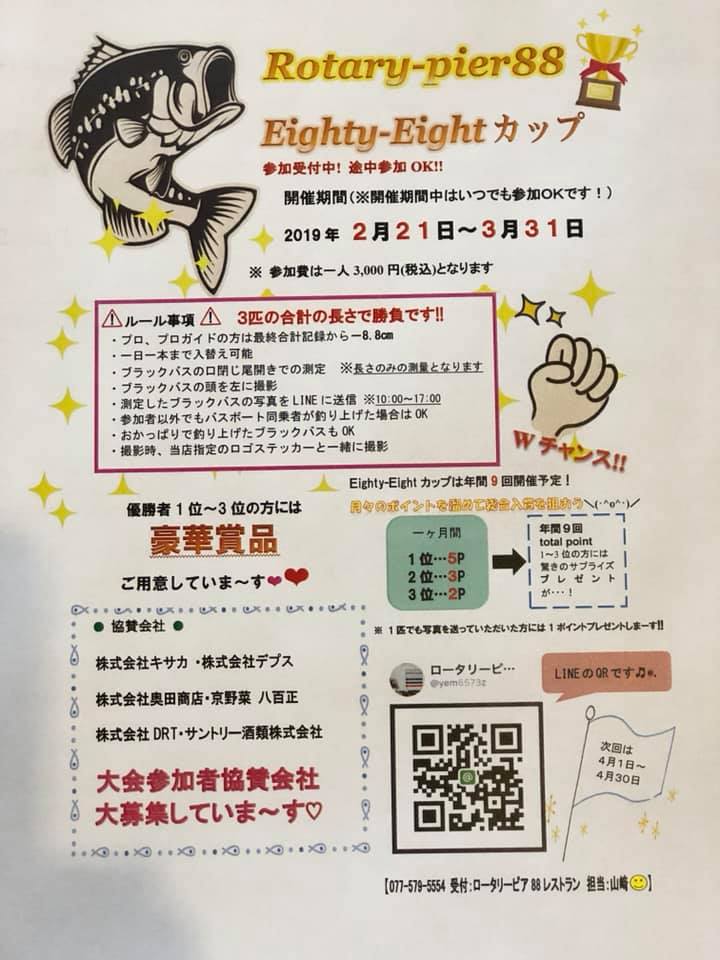 Rotary-pier88
Eighty-Eightカップ
参加受付中! 途中参加OK!!
開催期間(※開催期間中はいつでも参加OKです！)
2019年 2月21日〜3月31日
※ 参加費は一人3,000円(税込)となります
ルール事項 3匹の合計の長さで勝負です!!
・プロ、プロガイドの方は最終合計記録から−8.8cm
・一日一本まで入替え可能
・ブラックバスの口閉じ尾開きでの測定 ※長さのみの測量となります
・ブラックバスの頭を左に撮影
・測定したブラックバスの写真をLINEに送信 ※10:00〜17:00
・参加者以外でもバスボート同乗者が釣り上げた場合はOK
・おかっぱりで釣り上げたブラックバスもOK
・撮影時、当店指定のロゴステッカーと一緒に撮影
Wチャンス!!
Eighty-Eightカップは年間9回開催予定！
月々のポイントを溜めて総合入賞を狙おう＼(·^o^·)／
優勝者1位〜3位の方には
豪華賞品
ご用意していま〜す❤❤
一ヶ月間
1位…5P
2位…3P
3位…2P
年間9回
total point
1〜3位の方には
驚きのサプライズ
プレゼント
が…！
※ 1匹でも写真を送っていただいた方には1ポイントプレゼントしまーす!!
● 協賛会社 ●
株式会社キサカ・株式会社デプス
株式会社奥田商店・京野菜 八百正
株式会社DRT・サントリー酒類株式会社
大会参加者協賛会社
大募集していま〜す♡
ロータリーピ…
@yem6573z
LINEのQRです♫*.
次回は
4月1日〜
4月30日
【077-579-5554 受付:ロータリーピア88レストラン 担当:山崎😊】